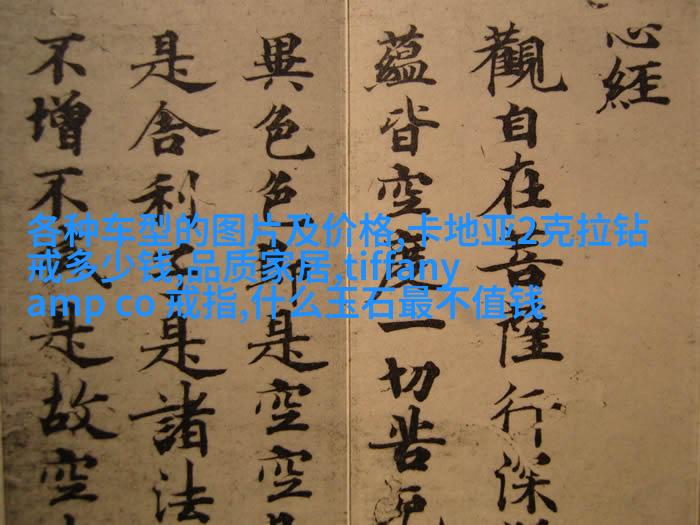 心經
觀自在菩薩行深
蘊皆空度一切苦厄
異色色即是空空
是舍利子是諸法
不增不減是故空
各种车型的图片及价格,卡地亚2克拉钻
戒多少钱,品质家居,tiffany
amp co 戒指,什么玉石最不值钱